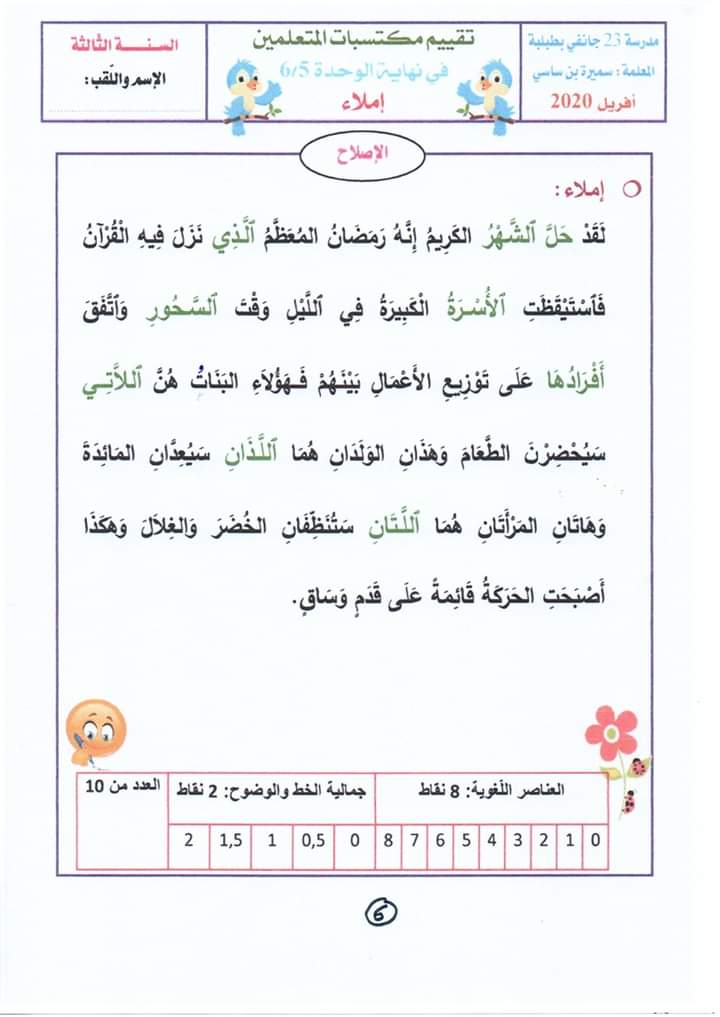 مدرسة 23 جانفي بطبلبة
المعلمة : سميرة بن ساسي
أفريل 2020
تقييم مكتسبات المتعلمين
في نهاية الوحدة 6/5
إملاء
السنـــة الثالثة
الإسم واللّقب:
الإصلاح
إملاء :
لَقَدْ حَلَّ ٱلشَّهْرُ الكَرِيمُ إِنَّهُ رَمَضَانُ المُعَظَّمُ ٱلَّذِي نَزَلَ فِيهِ الْقُرْآنُ
فَٱسْتَيْقَظَتِ ٱلأُسْرَةُ الْكَبِيرَةُ فِي اللَّيْلِ وَقْتَ ٱلسَّحُورِ وَٱتَّفَقَ
أَفْرَادُهَا عَلَى تَوْزِيعِ الأَعْمَالِ بَيْنَهُمْ فَـهَؤُلاَءِ البَنَاتُ هُنَّ ٱللاَّتِـي
سَيُحْضِرْنَ الطَّعَامَ وَهَذَانِ الوَلَدَانِ هُمَا ٱللَّذَانِ سَيُعِدَّانِ المَائِدَةَ
وَهَاتَانِ المَرْأَتَانِ هُمَا ٱللَّتَانِ سَتُنَظِّفَانِ الخُضَرَ وَالغِلاَلَ وَهَكَذَا
أَصْبَحَتِ الحَرَكَةُ قَائِمَةً عَلَى قَدَمٍ وَسَاقٍ.
العناصر اللّغوية: 8 نقاط
جمالية الخط والوضوح: 2 نقاط
العدد من 10
0 1 2 3 4 5 6 7 8
0 0,5 1 1,5 2
6